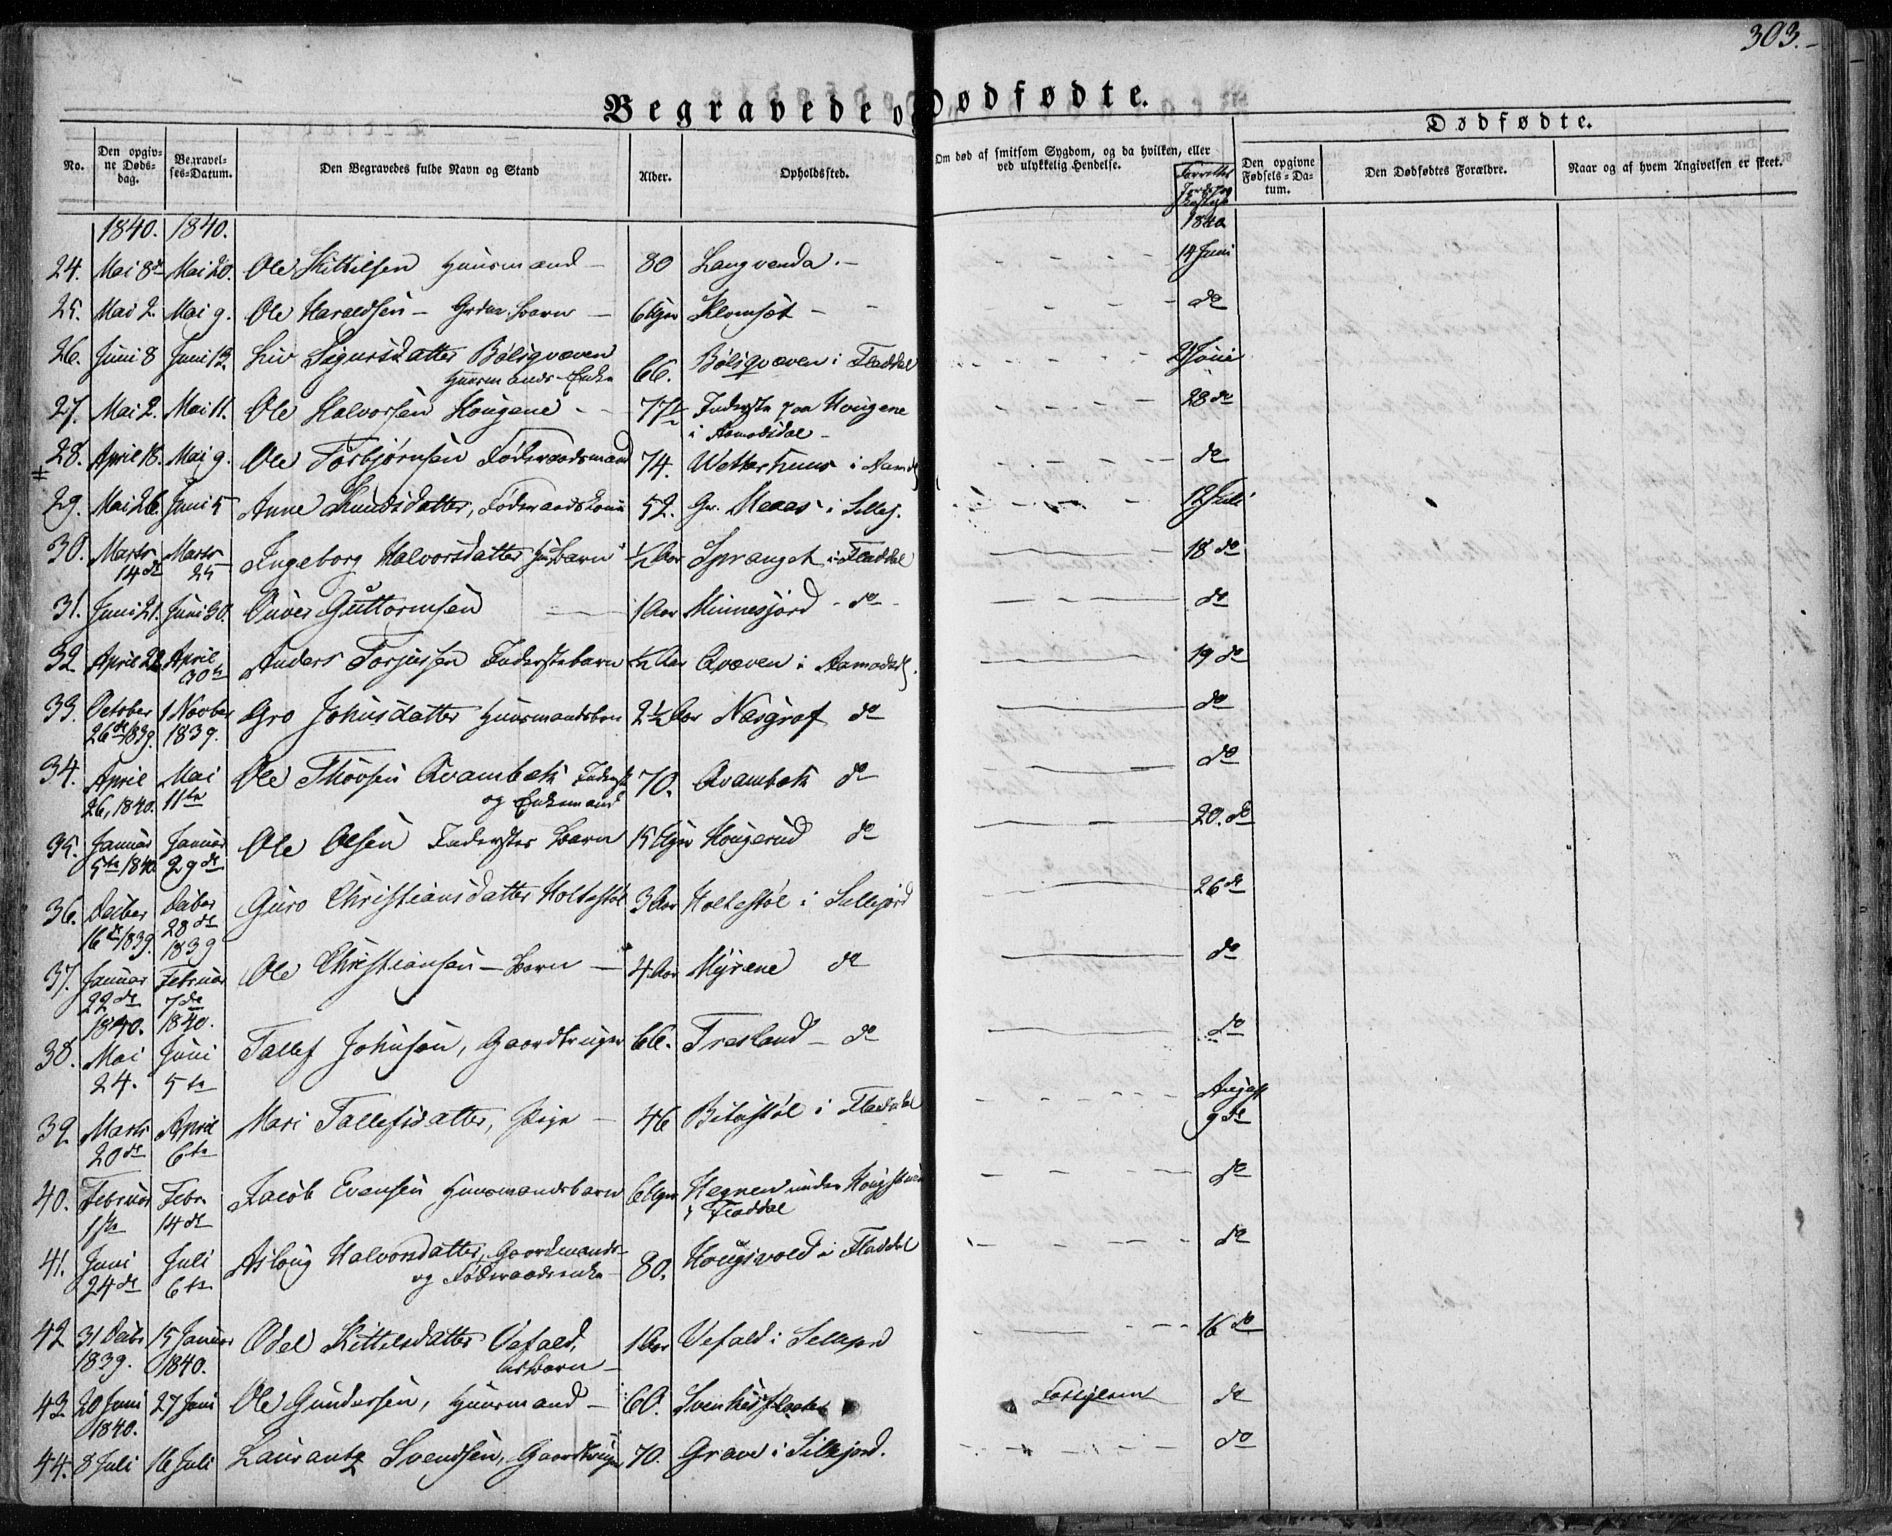 303.-
Begravede og Dødfødte.
Dødfødte.
No.
Den opgivne Dødsdag.
Begravelses-Datum.
Den Begravedes fulde Navn og Stand
Alder.
Opholdssted.
Om død af smitsom Sygdom, og da hvilken, eller ved ulykkelig Hendelse.
Den opgivne Fødsels-Datum.
Den Dødfødtes Forældre.
Naar og af hvem Angivelsen er skeet.
1840. 1840. 1840
24. Mai 8de Mai 20. Ole Kittilsen Huusmand - 80 Langvenda. - 14 Juni
25. Mai 2. Mai 9. Ole Haraldsen - Barn - 6 Uger Klomset - do
26. Juni 8 Juni 13. Liv Sigursdatter Bøliqvæven 66. Bøliqvæven i Fladdal 21 Juni
Huusmands-Enke
27. Mai 2. Mai 11. Ole Halvorsen Hougene - 77 Inderste paa Hougene 28 do
i Aamodsdal -
28. April 18. Mai 9. Ole Torbjørnsen Føderaadsmand 74. Wetterhuus i Aamd do
29. Mai 26. Juni 5 Anne Knudsdatter, Føderaadskone 52. Gr. Meaas i Sillej. 12 Juli
30. Marts 14de Marts 25 Ingeborg Halvorsdatter Barn ½ Aar Spranget i Fladdal 18 do
31. Juni 21. Juni 30. Guttormsen 1 Aar Minnesjord - do - do
32 April 22 April 30te Anders Torjussen Inderstebarn ½ Aar Qvæven i Aamodsd. 19 do
33. October 26de 1839. 1 Novber 1839. Gro Johnsdatter Huusmandsbrn 2½ Aar Næsgraf do do
34. April 26, 1840. Mai 11te Ole Thovsen Qvambæk Inderste 70. Qvambæk do do
og Enkemand
35. Januar 5te 1840. Januar 29de Ole Olsen Inderstes Barn 15 Uger Hougerud do 20. do
36. Decber 16de 1839. Decber 28de 1839 Guro Christiansdatter Holtestøl 3 Aar Holtestøl i Sillejord 26 do
37. Januar 22de 1840. Februar 7de 1840. Ole Christiansen - Barn - 4 Aar Myrene do do
38. Mai 24. Juni 5te Tallef Johnsen, Gaardbruger 66. Tresland - do do
39. Marts 20de April 6te Mari Tallefsdatter, Pige - 46 Bitustøl i Fladdal August 9 do
40. Februar 1ste Febr. 14de Jacob Evensen Huusmandsbarn 6 Uger Hegnen under
i Fladdal do
41. Juni 24de Juli 6te Asloug Halvorsdatter, Gaardmands- 80. Hougsvold i Fladdal do
og Føderaadsenke -
42 31 Decbr 1839. 15 Januar 1840. Odel Kittelsdatter Vefald, 1 Aar Vefald i Sillejord 16 do
Barn -
43 20 Juni 1840. 27 Juni Ole Gundersen, Huusmand - 60. do
44. 8 Juli 16 Juli Laurantz Svendsen, Gaardbruger 70. Grave i Sillejord. do